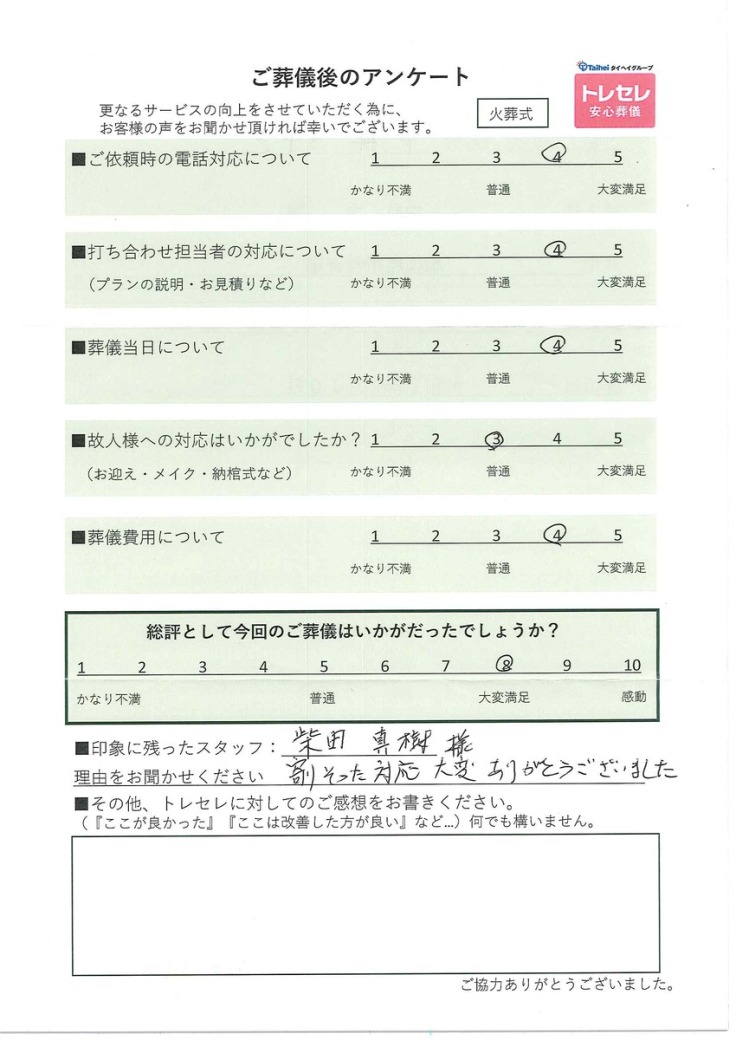 ご葬儀後のアンケート
Taihei タイヘイグループ
トレセレ
安心葬儀
更なるサービスの向上をさせていただく為に、
お客様の声をお聞かせ頂ければ幸いでございます。
火葬式
■ご依頼時の電話対応について 1 2 3 4 5
かなり不満 普通 大変満足
■打ち合わせ担当者の対応について 1 2 3 4 5
（プランの説明・お見積りなど） かなり不満 普通 大変満足
■葬儀当日について 1 2 3 4 5
かなり不満 普通 大変満足
■故人様への対応はいかがでしたか？ 1 2 3 4 5
（お迎え・メイク・納棺式など） かなり不満 普通 大変満足
■葬儀費用について 1 2 3 4 5
かなり不満 普通 大変満足
総評として今回のご葬儀はいかがだったでしょうか？
1 2 3 4 5 6 7 8 9 10
かなり不満 普通 大変満足 感動
■印象に残ったスタッフ： 柴田 真樹 様
理由をお聞かせください 割そった対応 大変 ありがとうございました
■その他、トレセレに対してのご感想をお書きください。
（『ここが良かった』『ここは改善した方が良い』など…）何でも構いません。
ご協力ありがとうございました。